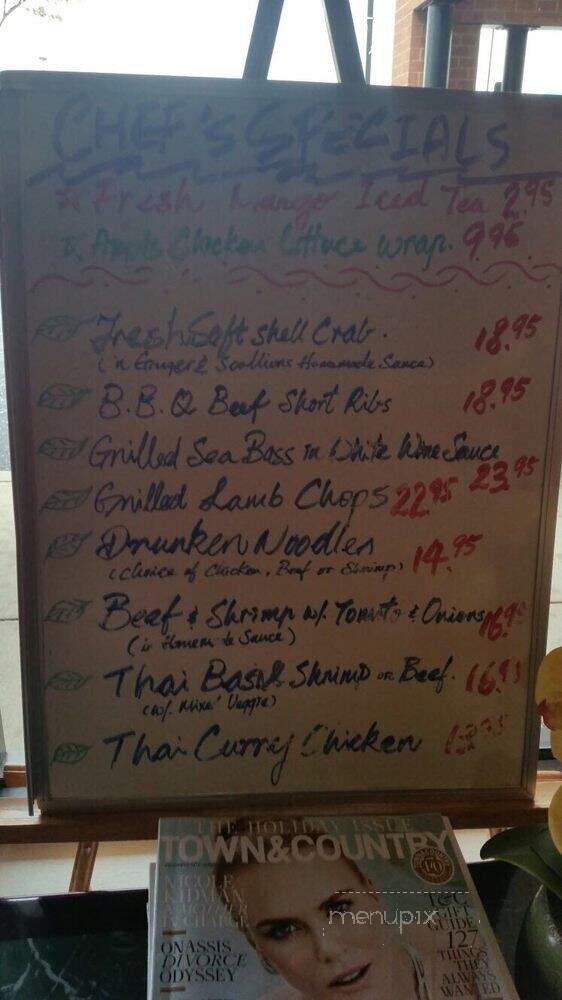 CHEF'S SPECIALS
Fresh Mango Iced Tea 2.95
Apple Chicken Lettuce Wrap. 9.95
Fresh Soft Shell Crab. 18.95
(in Ginger & Scallions Homemade Sauce)
B.B.Q Beef Short Ribs 18.95
Grilled Sea Bass in White Wine Sauce
23.95
Grilled Lamb Chops 22.95
Drunken Noodles 14.95
(choice of Chicken, Beef or Shrimp)
Beef & Shrimp w/. Tomato & Onions 16.95
(in Homemade Sauce)
Thai Basil Shrimp or Beef. 16.95
(w/. Mixed Veggie)
Thai Curry Chicken
THE HOLIDAY ISSUE
TOWN&COUNTRY
NICOLE
KIDMAN
ONASSIS
DIVORCE
ODYSSEY
T&C
GIFT
GUIDE
127
THINGS
THEY
ALWAYS
WANTED
menupix